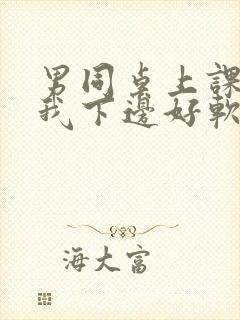 男同桌上課
我下邊好軟
海大富